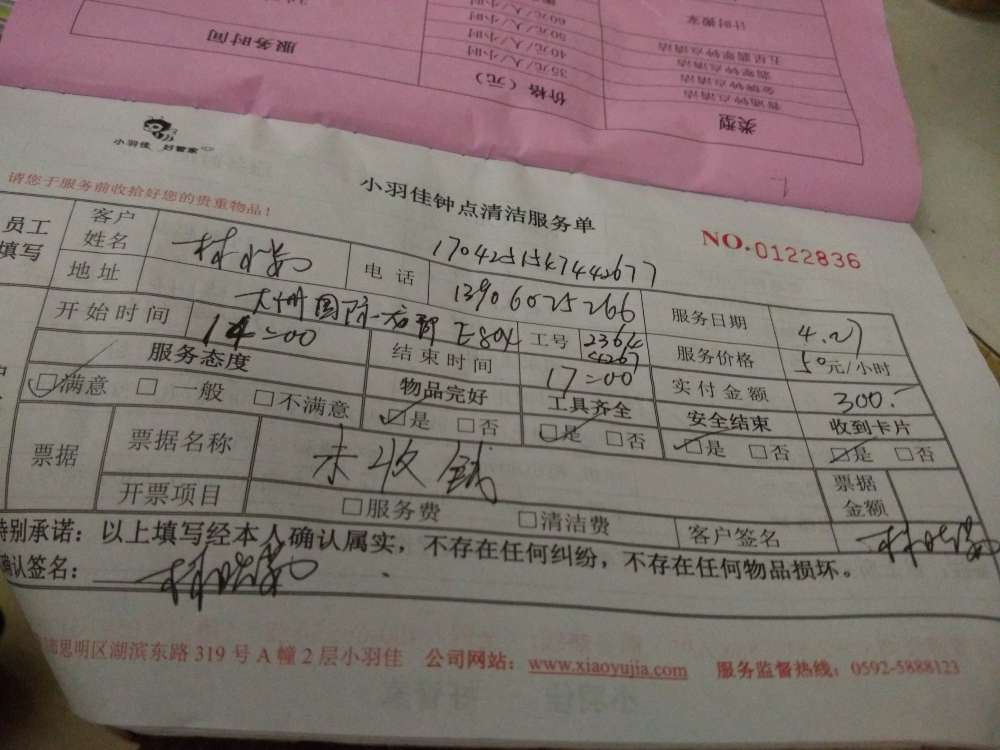 计时搬家
60元/人/小时
五星翡翠钟点清洁
50元/人/小时
翡翠钟点清洁
40元/人/小时
金牌钟点清洁
35元/人/小时
普通钟点清洁
服务时间
价格（元）
类型
小羽佳 好管家
请您于服务前收拾好您的贵重物品！
小羽佳钟点清洁服务单
NO.0122836
员工填写
客户姓名
电话
13906025266
服务日期
4.27
地址
E804
工号
2364
4267
服务价格
50元/小时
开始时间
14:00
结束时间
17:00
实付金额
300.-
服务态度
物品完好
工具齐全
安全结束
收到卡片
☑满意 □一般 □不满意
☑是 □否
☑是 □否
☑是 □否
☑是 □否
票据
票据名称
未收钱
票据金额
开票项目
□服务费 □清洁费
客户签名
特别承诺：以上填写经本人确认属实，不存在任何纠纷，不存在任何物品损坏。
确认签名：
思明区湖滨东路319号A幢2层小羽佳 公司网站：www.xiaoyujia.com 服务监督热线：0592-5888123